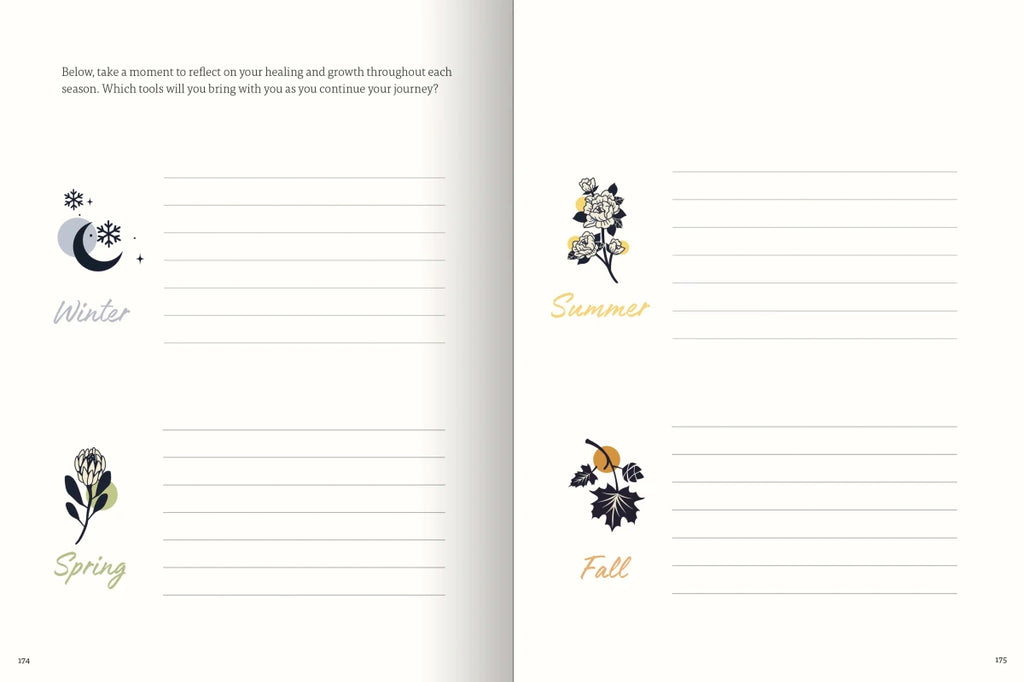 Below, take a moment to reflect on your healing and growth throughout each
season. Which tools will you bring with you as you continue your journey?
Winter
Spring
174
Summer
Fall
175